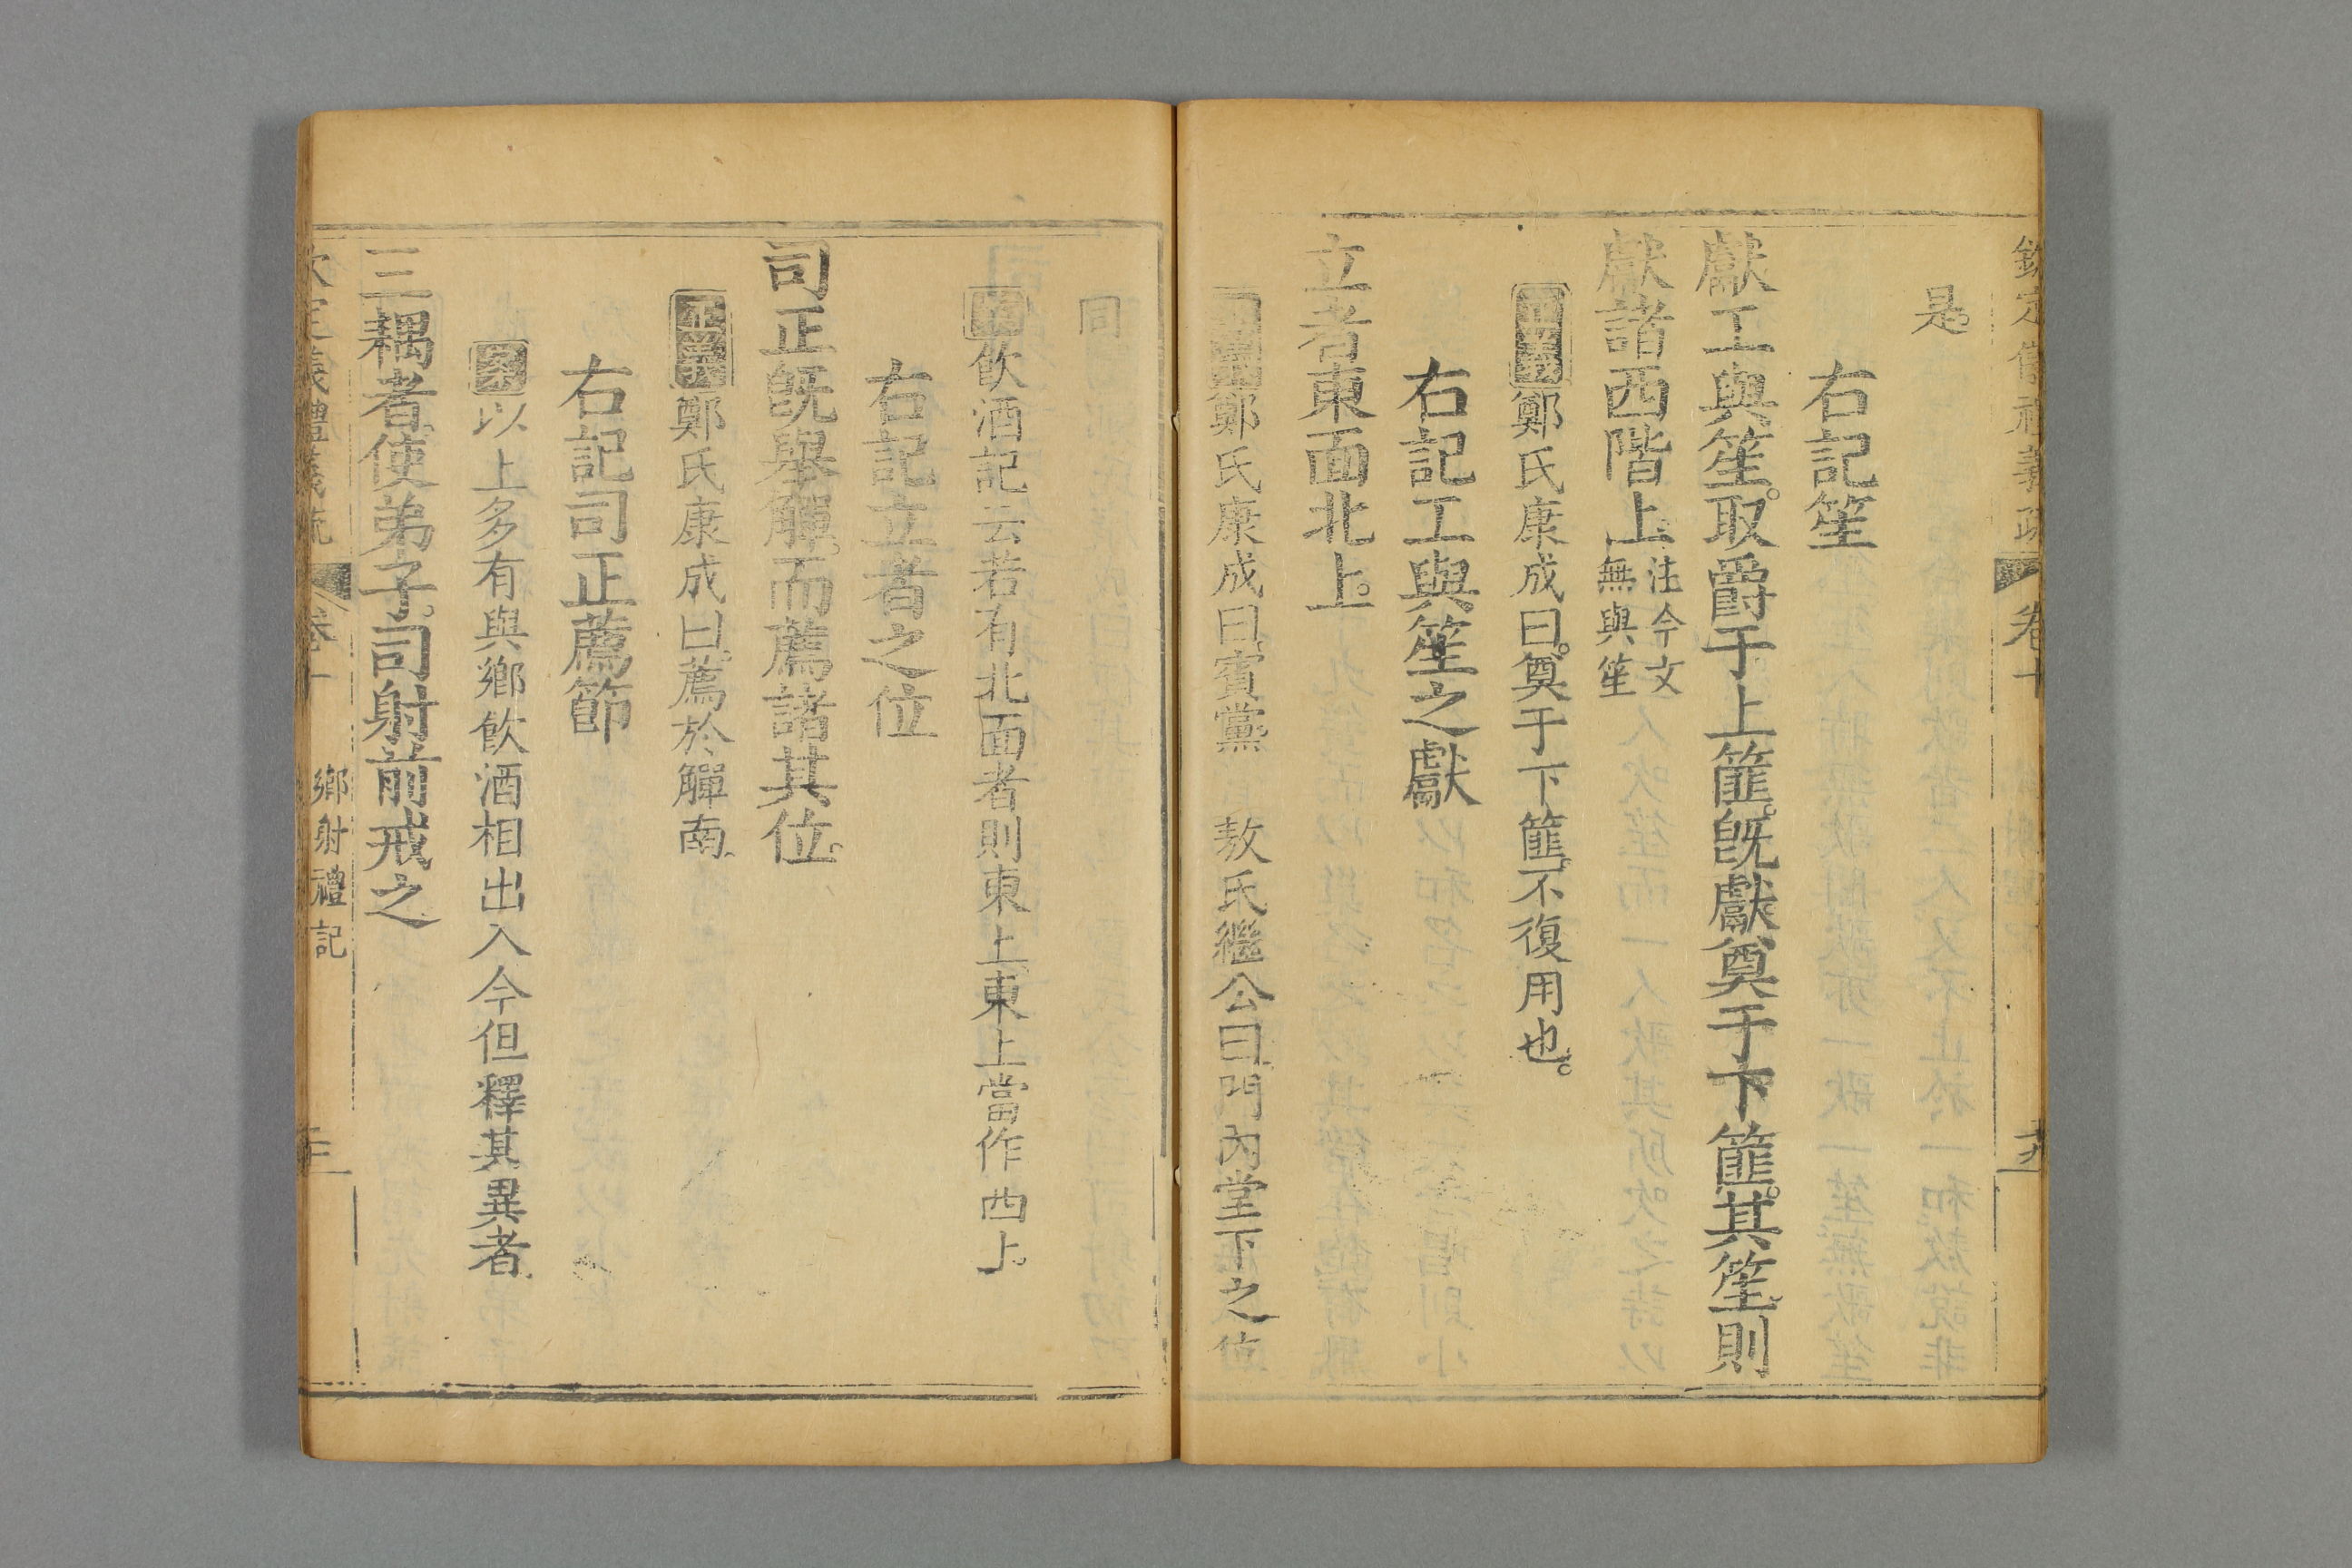 欽定儀禮義疏 卷十
是。
右記笙
獻工與笙。取爵于上篚。旣獻奠于下篚。其笙則
獻諸西階上。注今文無與笙
正義鄭氏康成曰。奠于下篚。不復用也。
右記工與笙之獻
立者東面北上。
正義鄭氏康成曰賓黨 敖氏繼公曰門內堂下之位
同
飲酒記云若有北面者則東上東上當作西上
右記立者之位
司正旣舉觶。而薦諸其位。
正義鄭氏康成曰薦於觶南
右記司正薦節
案以上多有與鄉飲酒相出入今但釋其異者
三耦者使弟子。司射前戒之
欽定儀禮義疏 卷十 鄉射禮記